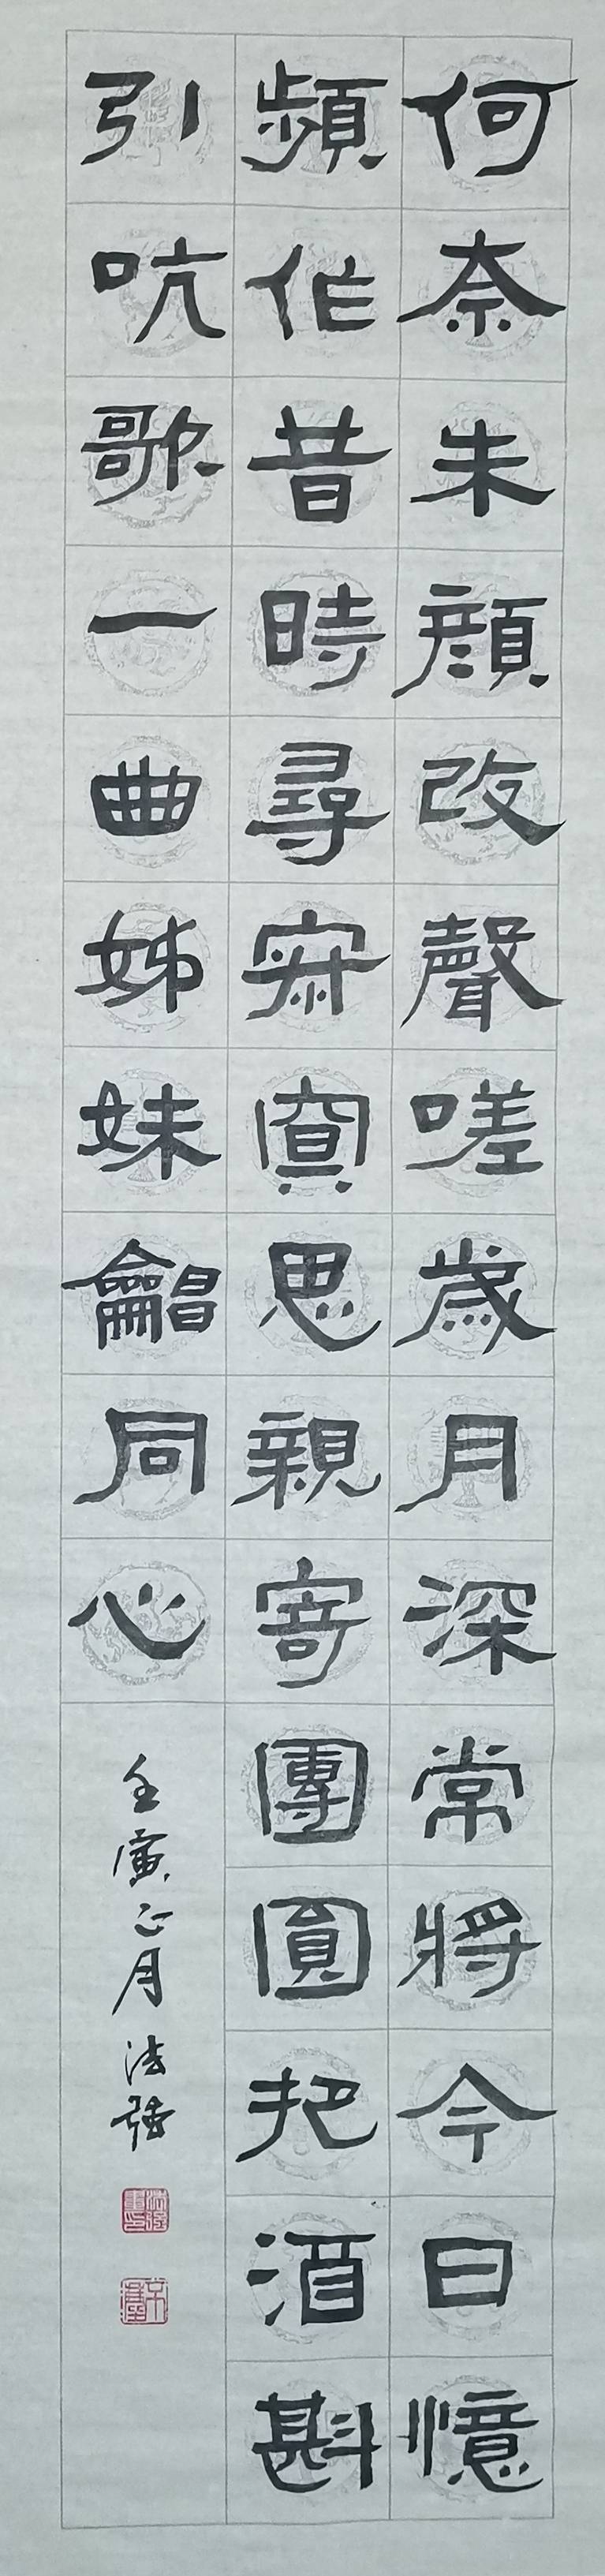 何奈朱顔改聲嗟歲月深常將今日憶
頻作昔時尋寂寞思親寄團圓把酒斟
引吭歌一曲姊妹龢同心
壬寅正月法強